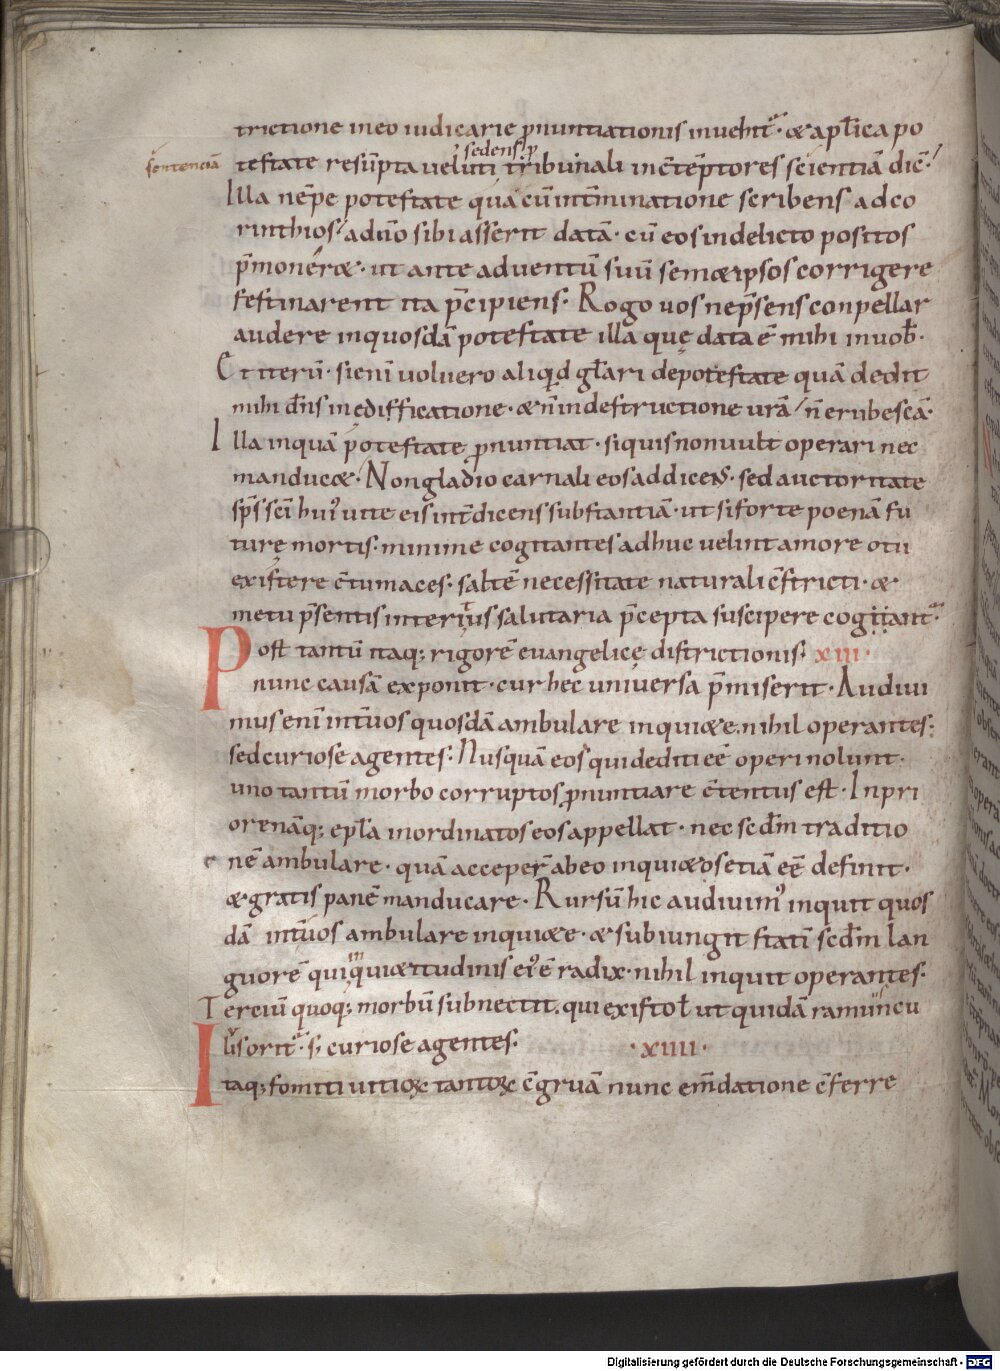 trictione in eo iudicarie ꝓnuntiationis inuehit̄. & apl̄ica po
sedens ꝓ
sententiā
testate resūpta uelut i tribunali in c̄tēptores scientiā dic̄.
Illa nēpe potestate quā cū int̄minatione scribens ad co
rinthios adūo sibi asserit datā. cū eos in delicto positos
p̄moner&. ut ante aduentū suū sem&ipsos corrigere
festinarent ita p̄cipiens. Rogo uos ne p̄sens conpellar
audere in quosdā potestate illa quę data ē mihi in uob̄.
Et iterū. si eni uoluero aliqid gl̄ari de potestate quā dedit
mihi dn̄s in ędifficatione. & n̄ in destructione urā n̄ erubescā.
Illa inquā potestate ꝓnuntiat. si quis non uult operari nec
manduc&. Non gladio carnali eos addicens. sed auctoritate
sp̄s sc̄i hui' uite eis int̄dicens substantiā. ut si forte poenā fu
turę mortis. minime cogitantes adhuc uelint amore otii
existere c̄tumaces. saltē necessitate naturali c̄stricti. &
metu p̄sentis interius salutaria p̄cepta suscipere cogitant̄.
Post tantū itaq; rigorē euangelicę districtionis. XIII.
nunc causā exponit. cur hec uniuersa p̄miserit. Audiui
mus eni int̄ uos quosdā ambulare inqui&e. nihil operantes.
sed curiose agentes. Nusquā eos qui dediti eē operi nolunt.
uno tantū morbo corruptos ꝓnuntiare c̄tentus est. In pri
ore nāq; epl̄a inordinatos eos appellat. nec scd̄m traditio
nē ambulare. quā acceper̄ ab eo inqui&os etiā eē definit.
& gratis panē manducare. Rursū hic audiuim' inquit quos
dā int̄ uos ambulare inqui&e. & subiungit statī scd̄m lan
guorē qui inqui&itudinis ei' ē radix. nihil inquit operantes.
Terciū quoq; morbū subnectit. qui existol̄ ut quidā ramuncu
lus orit̄. s; curiose agentes. . XIIII .
Itaq; fomiti uitioꝝ tantoꝝ c̄gruā nunc em̄datione c̄ferre
Digitalisierung gefördert durch die Deutsche Forschungsgemeinschaft - DFG